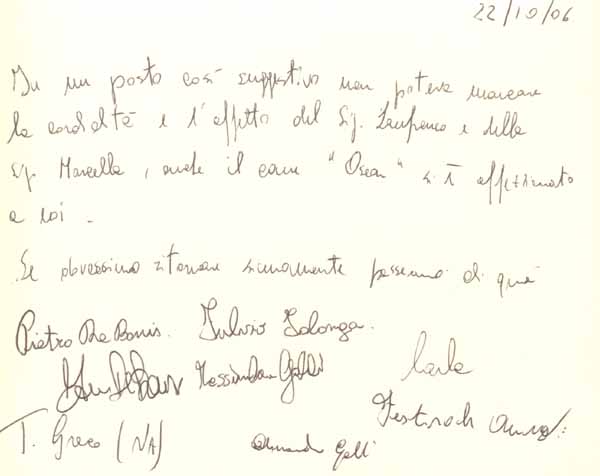 22/10/06
In un posto così suggestivo non poteva mancare
la cordialità e l'affetto del Sig. Lanfranco e della
Sig. Marcella, anche il cane "Oscar" si è affezionato
a noi.
Se dovessimo ritornare sicuramente passeremo di qua
Pietro De Bonis. Fulvio
Galli
Carla
T. Greco (NA)
Armando Galli